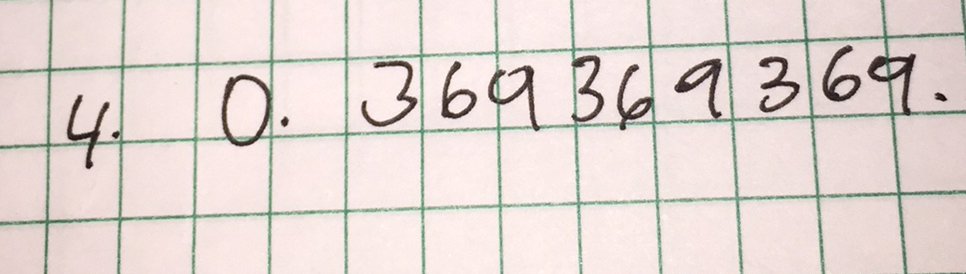 4. 0. 369369369.